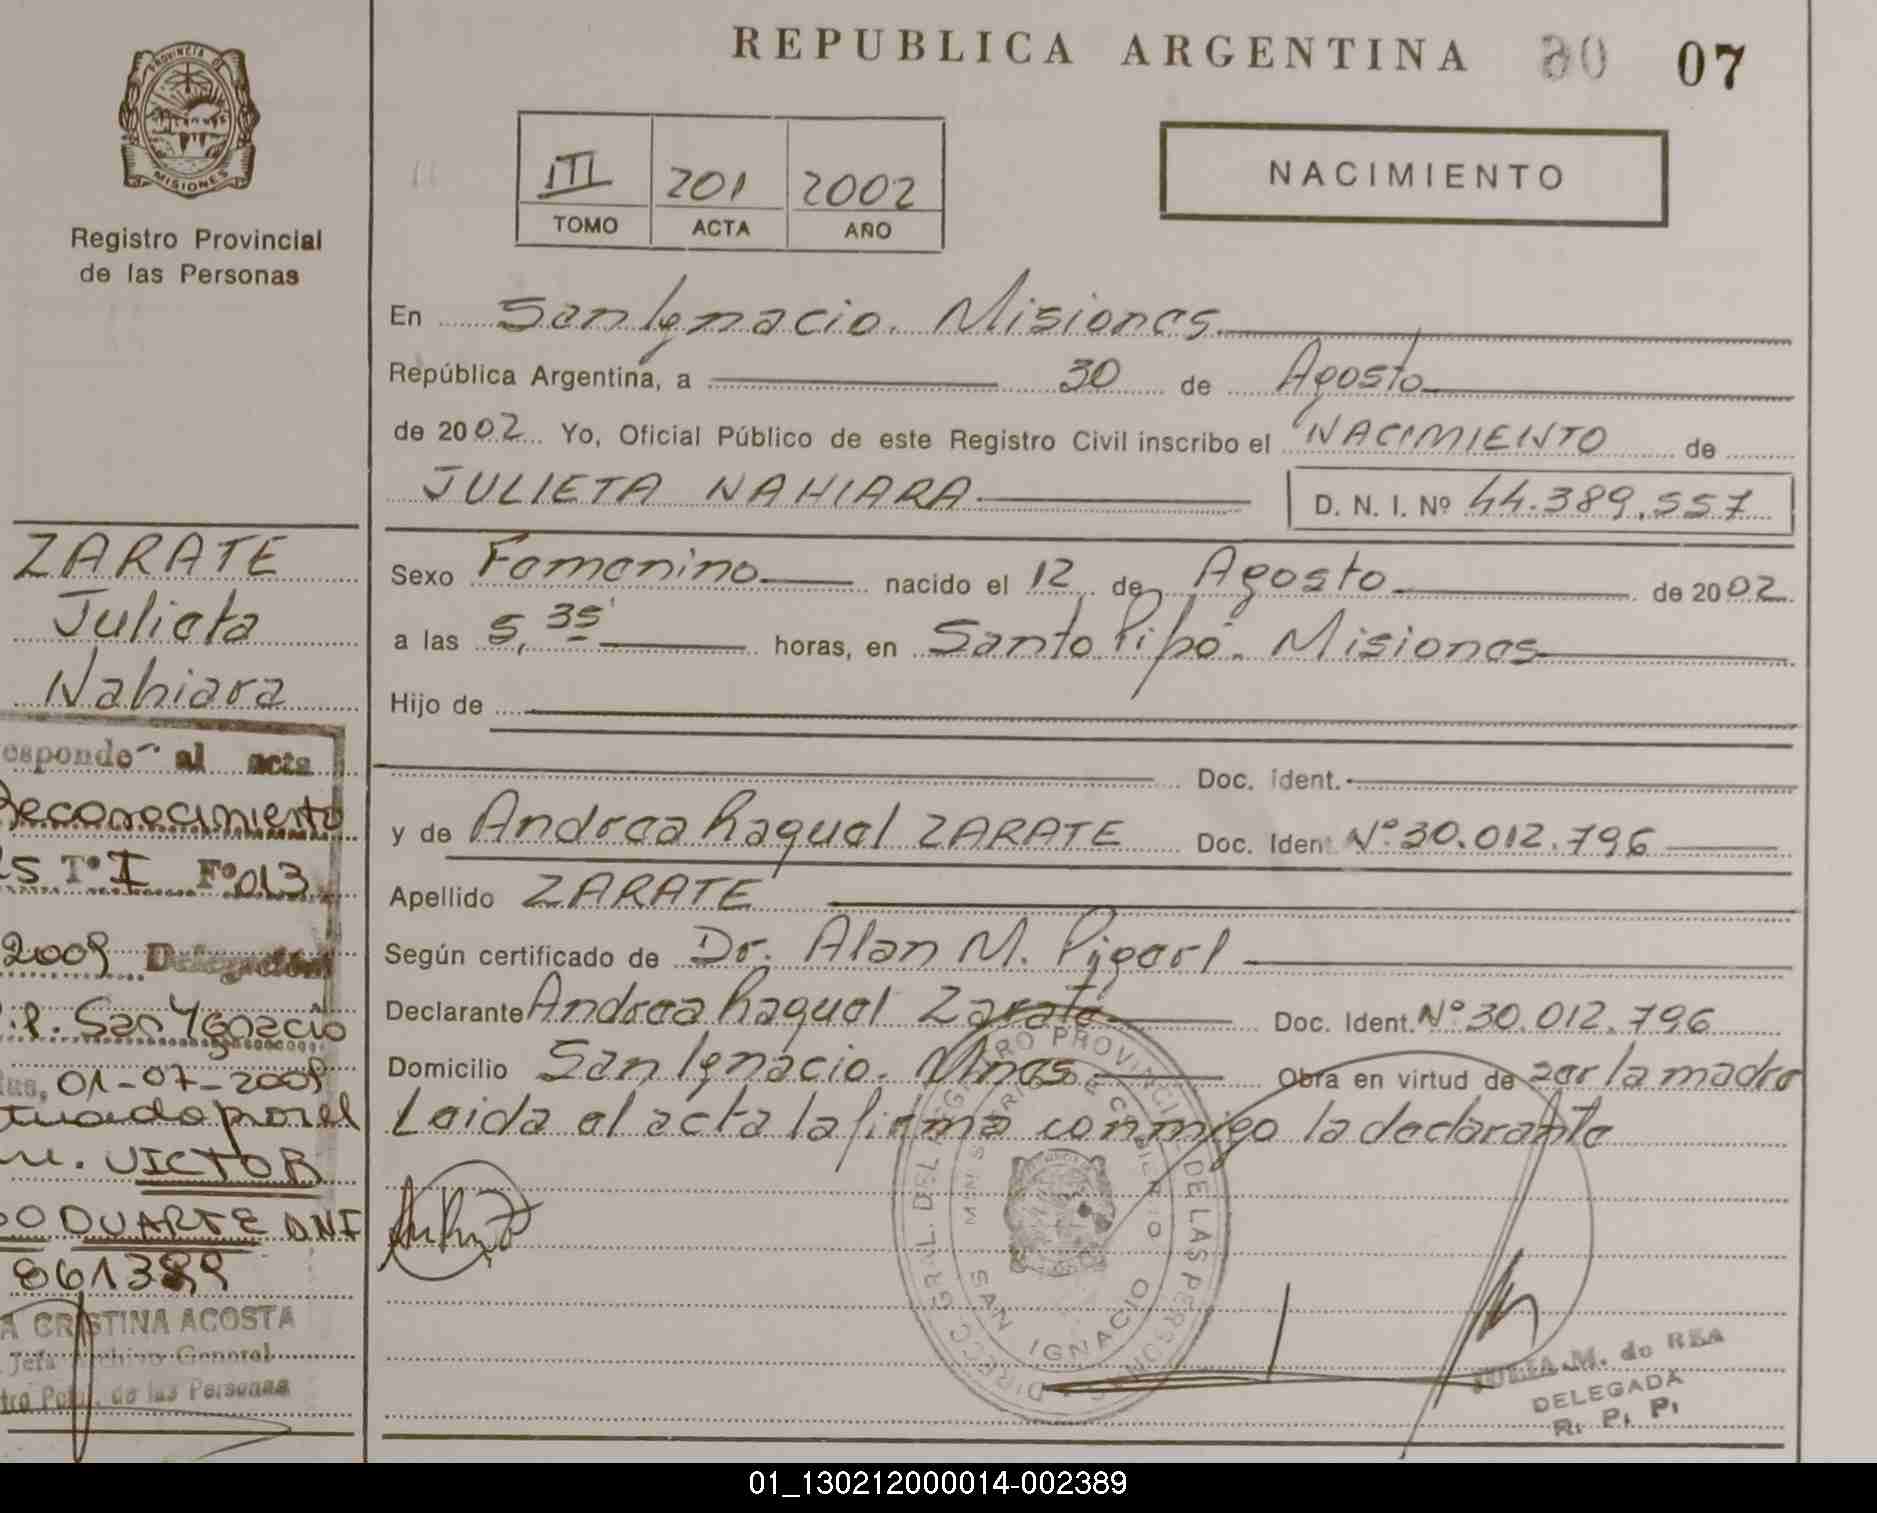 REPUBLICA ARGENTINA 07
PROVINCIA D
MISIONES
Registro Provincial
de las Personas
NACIMIENTO
III 201 2002
TOMO ACTA AÑO
En San Ignacio. Misiones
República Argentina, a 30 de Agosto
de 2002 Yo, Oficial Público de este Registro Civil inscribo el NACIMIENTO de
JULIETA NAHIARA D. N. I. Nº 44.389.557
Sexo Femenino nacido el 12 de Agosto de 2002
a las 5,35' horas, en Santo Pipó. Misiones
Hijo de
Doc. ident.
y de Andrea Raquel ZARATE Doc. Ident Nº 30.012.796
Apellido ZARATE
Según certificado de Dr. Alan M.
Declarante Andrea Raquel Zarate Doc. Ident. Nº 30.012.796
Domicilio San Ignacio. Mnes Obra en virtud de ser la madre
Leida el acta la firma conmigo la declarante
DIRECC. GRAL. DEL REGISTRO PROVINCIAL DE LAS PERSONAS
MINISTERIO DE GOBIERNO
SAN IGNACIO
JULIA M. de REA
DELEGADA
R. P. P.
ZARATE
Julieta
Nahiara
esponde al acta
Reconocimiento
25 Tº I Fº 013
2009 Delegación
.P. San Ygnacio
das, 01-07-2009
tuado por el
VICTOR
DO DUARTE DNI
861389
A CRISTINA ACOSTA
Jefa Archivo General
de las Personas
01_130212000014-002389